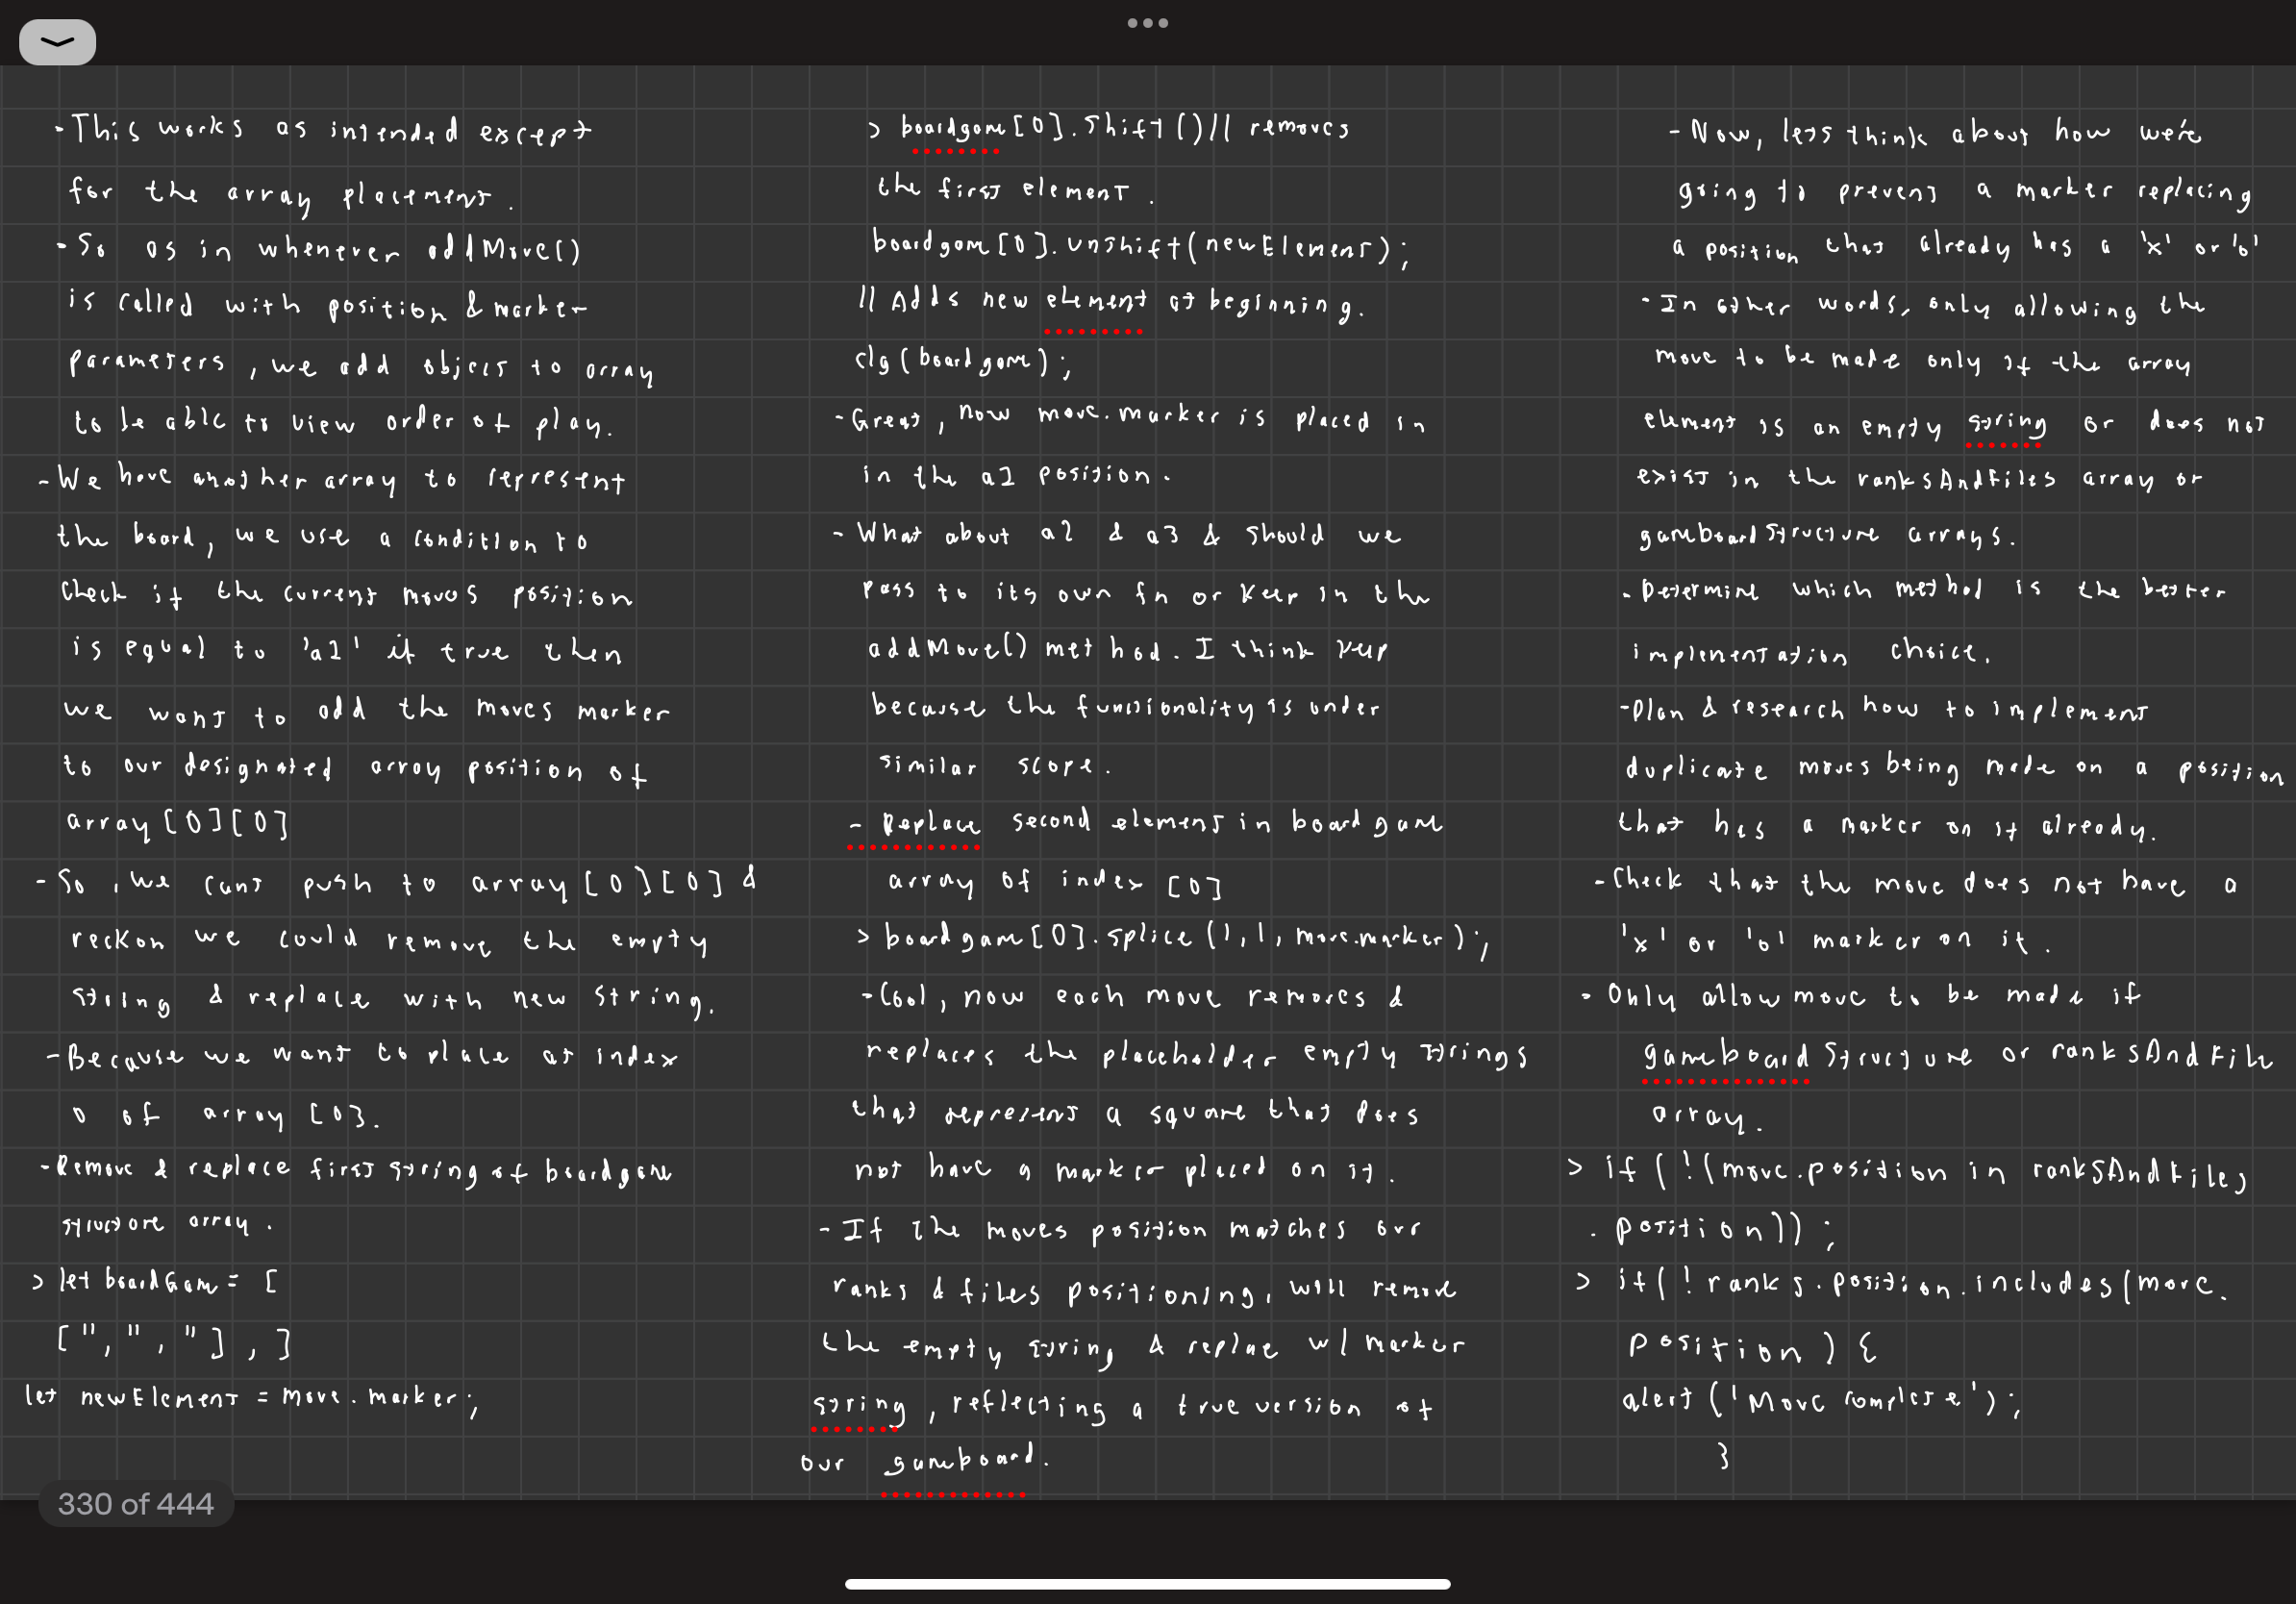 - This works as intended except
for the array placement.
- So as in whenever addMove()
is called with position & marker
parameters, we add object to array
to be able to view order of play.
- We have another array to represent
the board, we use a condition to
check if the current moves position
is equal to 'a1' if true then
we want to add the moves marker
to our designated array position of
array[0][0]
- So, we cant push to array[0][0] &
reckon we could remove the empty
string & replace with new string.
- Because we want to place at index
0 of array [0].
- Remove & replace first string of boardgame
structure array.
> let boardGam = [
['', '', ''], ]
let newElement = move.marker;
> boardgame[0].shift() // removes
the first element.
boardgam[0].unshift(newElement);
// Adds new element at beginning.
clg(boardgame);
- Great, now move.marker is placed in
in the a1 position.
- What about a2 & a3 & should we
pass to its own fn or keep in the
addMove() method. I think keep
because the functionality is under
similar scope.
- Replace second element in boardgame
array of index [0]
> boardgam[0].splice(1,1,move.marker);
- Cool, now each move removes &
replaces the placeholder empty strings
that represent a square that does
not have a marker placed on it.
- If the moves position matches our
ranks & files positioning, will remove
the empty string & replace w/ marker
string, reflecting a true version of
our gameboard.
- Now, lets think about how we're
going to prevent a marker replacing
a position that already has a 'x' or 'o'
- In other words, only allowing the
move to be made only if the array
element is an empty string or does not
exist in the ranksAndFiles array or
gameboardStructure arrays.
- Determine which method is the better
implementation choice.
- Plan & research how to implement
duplicate moves being made on a position
that has a marker on it already.
- Check that the move does not have a
'x' or 'o' marker on it.
- Only allow move to be made if
gameboard Structure or ranksAndFile
array.
> if (!(move.position in ranksAndFiles
.position));
> if(! ranks.position.includes(move.
position) {
alert('Move complete');
}
330 of 444